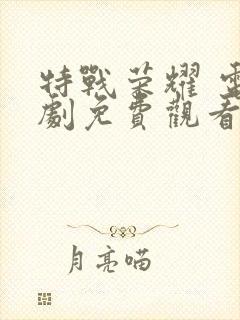 特戰荣耀 電
劇免費觀看
月亮喵